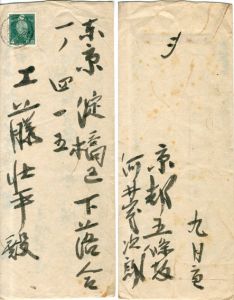 東京淀橋区下落合
一ノ四一五
工藤壮平殿
〆
九月
京都五條坂
河井寛次郎